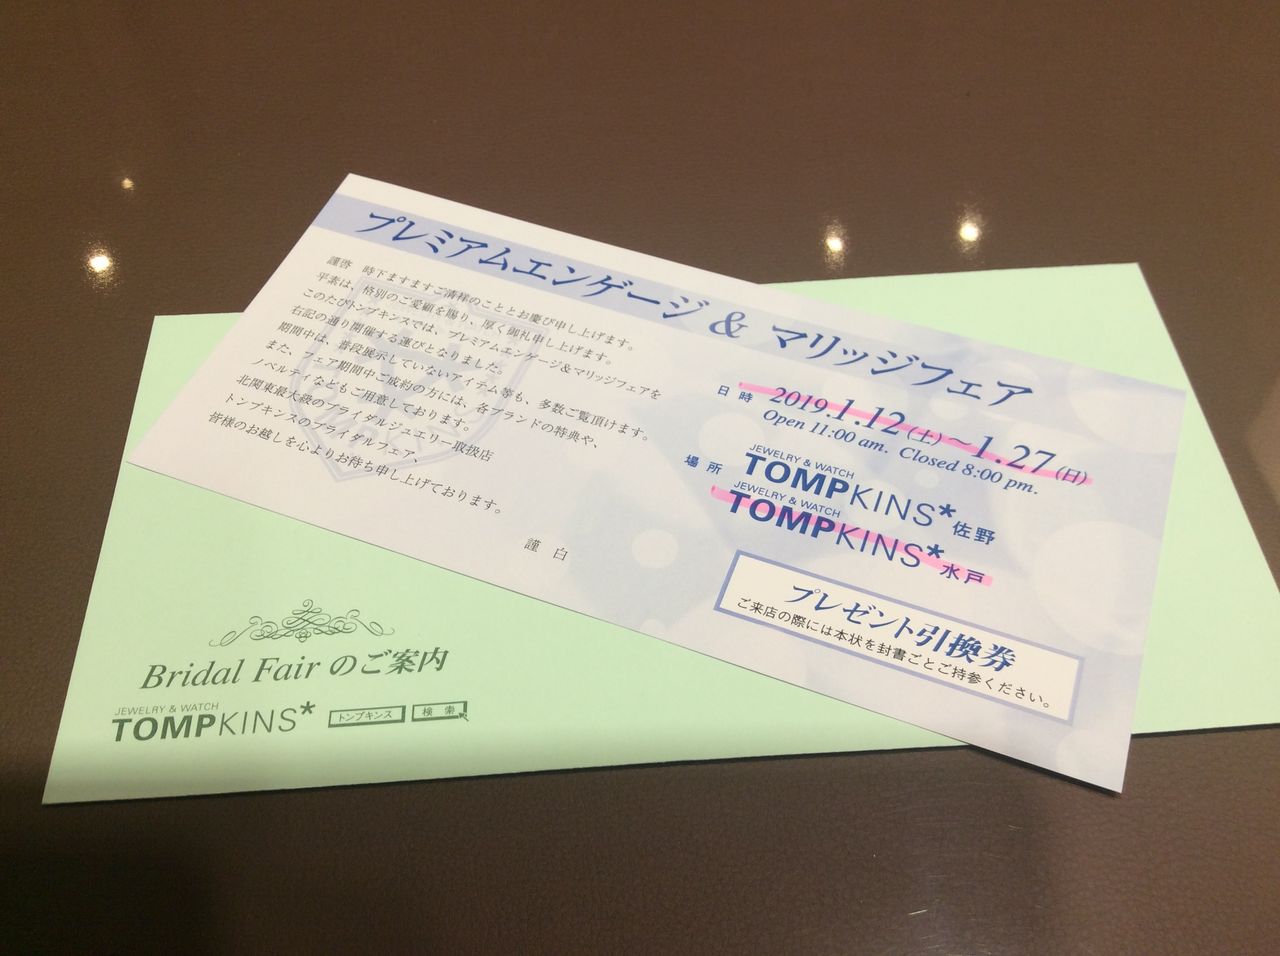 プレミアムエンゲージ & マリッジフェア
謹啓 時下ますますご清祥のこととお慶び申し上げます。
平素は、格別のご愛顧を賜り、厚く御礼申し上げます。
このたびトンプキンスでは、プレミアムエンゲージ&マリッジフェアを
右記の通り開催する運びとなりました。
期間中は、普段展示していないアイテム等も、多数ご覧頂けます。
また、フェア期間中ご成約の方には、各ブランドの特典や、
ノベルティなどもご用意しております。
北関東最大級のブライダルジュエリー取扱店
トンプキンスのブライダルフェア、
皆様のお越しを心よりお待ち申し上げております。
謹 白
日 時 2019.1.12(土)~1.27(日)
Open 11:00 am. Closed 8:00 pm.
場 所
JEWELRY & WATCH
TOMPKINS* 佐野
JEWELRY & WATCH
TOMPKINS* 水戸
プレゼント引換券
ご来店の際には本状を封書ごとご持参ください。
Bridal Fair のご案内
JEWELRY & WATCH
TOMPKINS* トンプキンス 検索